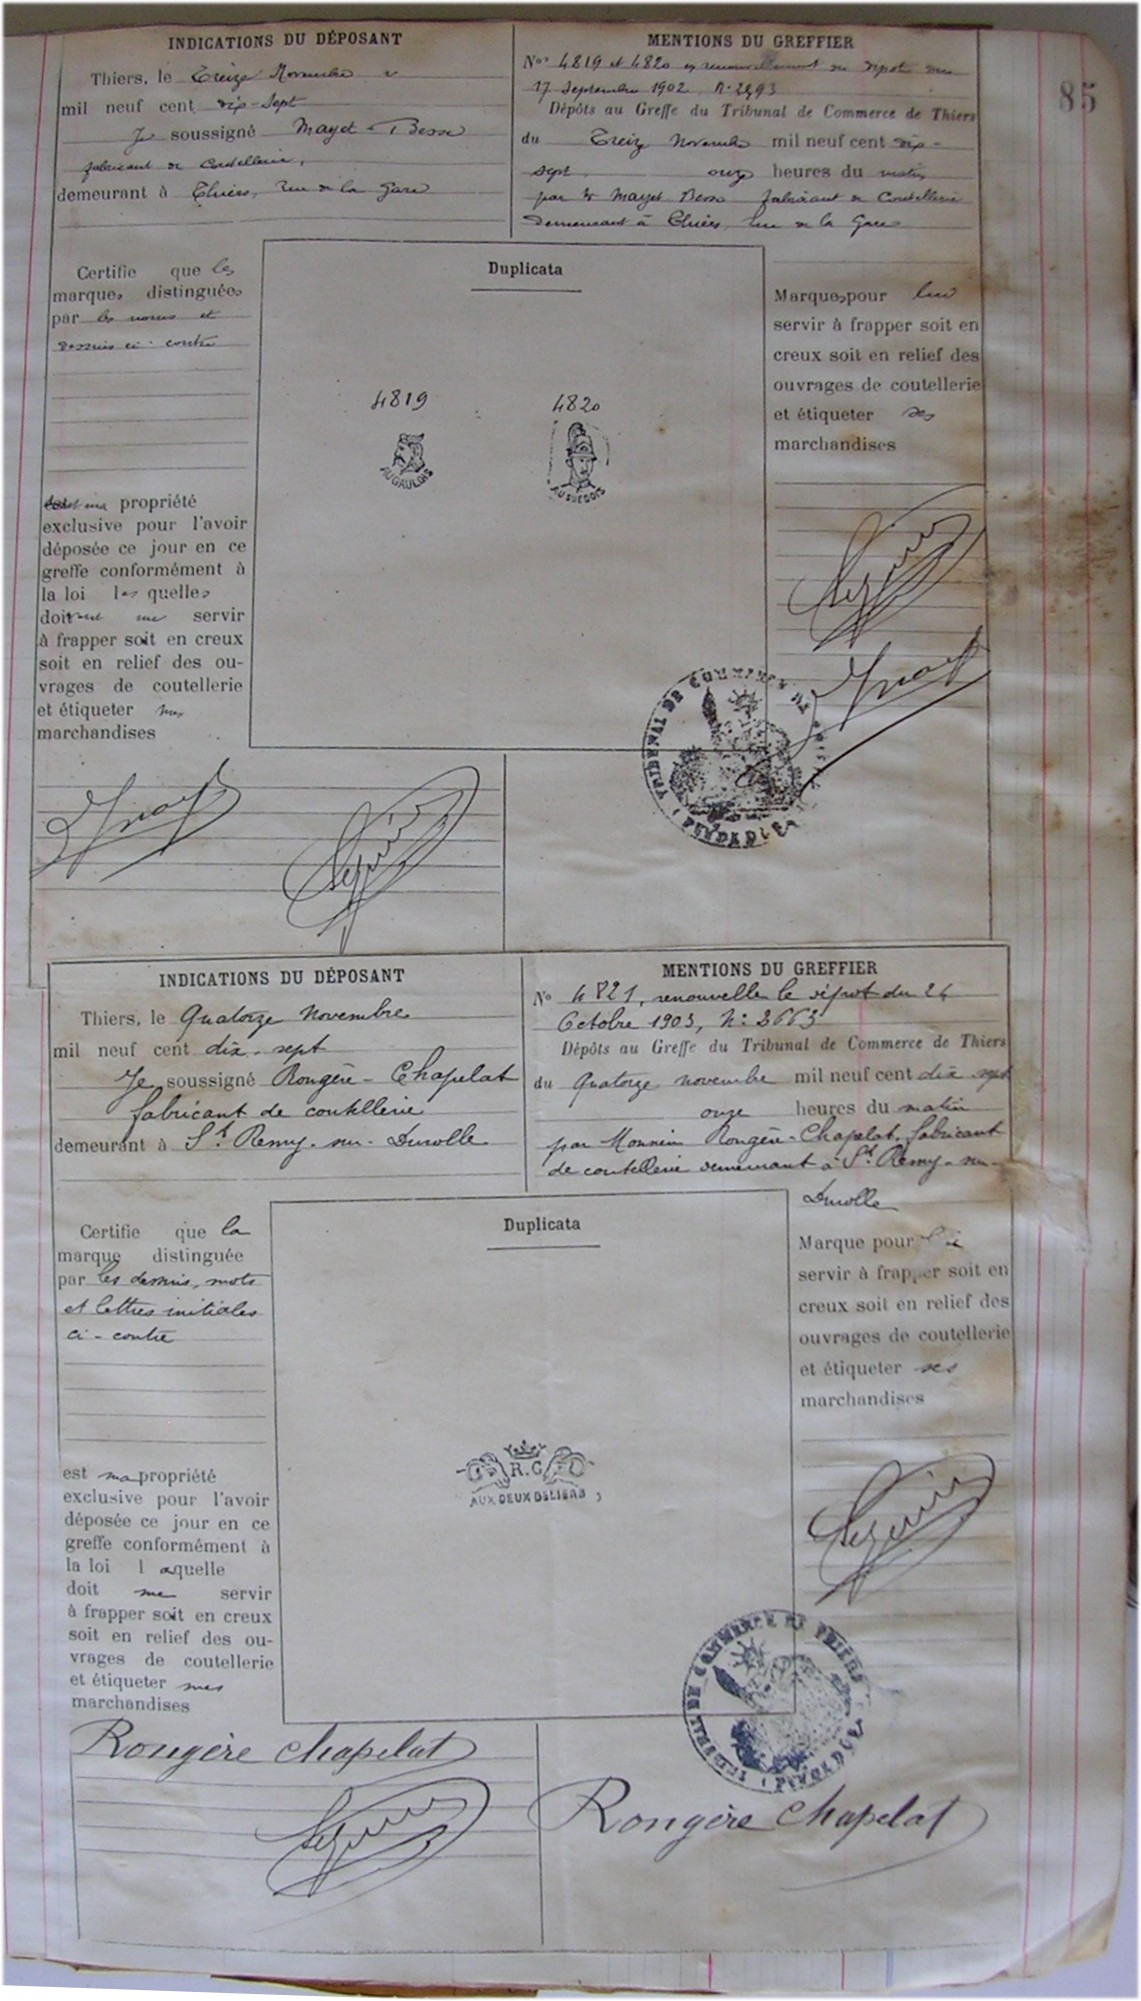 85
INDICATIONS DU DÉPOSANT
Thiers, le Treize Novembre
mil neuf cent dix-sept
Je soussigné Mayet-Besse
fabricant de Coutellerie,
demeurant à Thiers, Rue de la Gare
MENTIONS DU GREFFIER
Nos 4819 et 4820 en renouvellement du dépôt du
17 Septembre 1902, N. 2493
Dépôts au Greffe du Tribunal de Commerce de Thiers
du Treize Novembre mil neuf cent dix-
sept onze heures du matin
par Mr Mayet Besse fabricant de Coutellerie
Demeurant à Thiers, Rue de la Gare
Certifie que les
marques distinguées
par les noms et
dessins ci-contre
ma propriété
exclusive pour l'avoir
déposée ce jour en ce
greffe conformément à
la loi lesquelles
doivent me servir
à frapper soit en creux
soit en relief des ou-
vrages de coutellerie
et étiqueter mes
marchandises
Duplicata
4819 4820
AU GAULOIS AU SUEDOIS
Marques pour lui
servir à frapper soit en
creux soit en relief des
ouvrages de coutellerie
et étiqueter ses
marchandises
TRIBUNAL DE COMMERCE DE THIERS
PUY DE DÔME
INDICATIONS DU DÉPOSANT
Thiers, le Quatorze Novembre
mil neuf cent dix-sept
Je soussigné Rougère-Chapelat
fabricant de coutellerie
demeurant à St Remy-sur-Durolle
MENTIONS DU GREFFIER
No 4821, renouvelle le dépôt du 24
Octobre 1903, No: 2663
Dépôts au Greffe du Tribunal de Commerce de Thiers
du Quatorze novembre mil neuf cent dix sept
onze heures du matin
par Monsieur Rougère-Chapelat, fabricant
de coutellerie demeurant à St Remy-sur-
Durolle
Certifie que la
marque distinguée
par les dessins, mots
et lettres initiales
ci-contre
est ma propriété
exclusive pour l'avoir
déposée ce jour en ce
greffe conformément à
la loi laquelle
doit me servir
à frapper soit en creux
soit en relief des ou-
vrages de coutellerie
et étiqueter mes
marchandises
Duplicata
R.C
AUX DEUX BELIERS
Marque pour lui
servir à frapper soit en
creux soit en relief des
ouvrages de coutellerie
et étiqueter ses
marchandises
TRIBUNAL DE COMMERCE DE THIERS
PUY DE DÔME
Rougère Chapelat
Rougère Chapelat